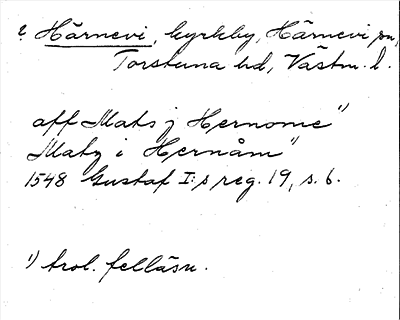 Härnevi, kyrkby, Härnevi sn,
Torstuna hd, Västm. l.
aff Mats j Hernome" 1)
Matz i Hernåm"
1548 Gustaf I:s reg. 19, s. 6.
1) trol. felläsn.